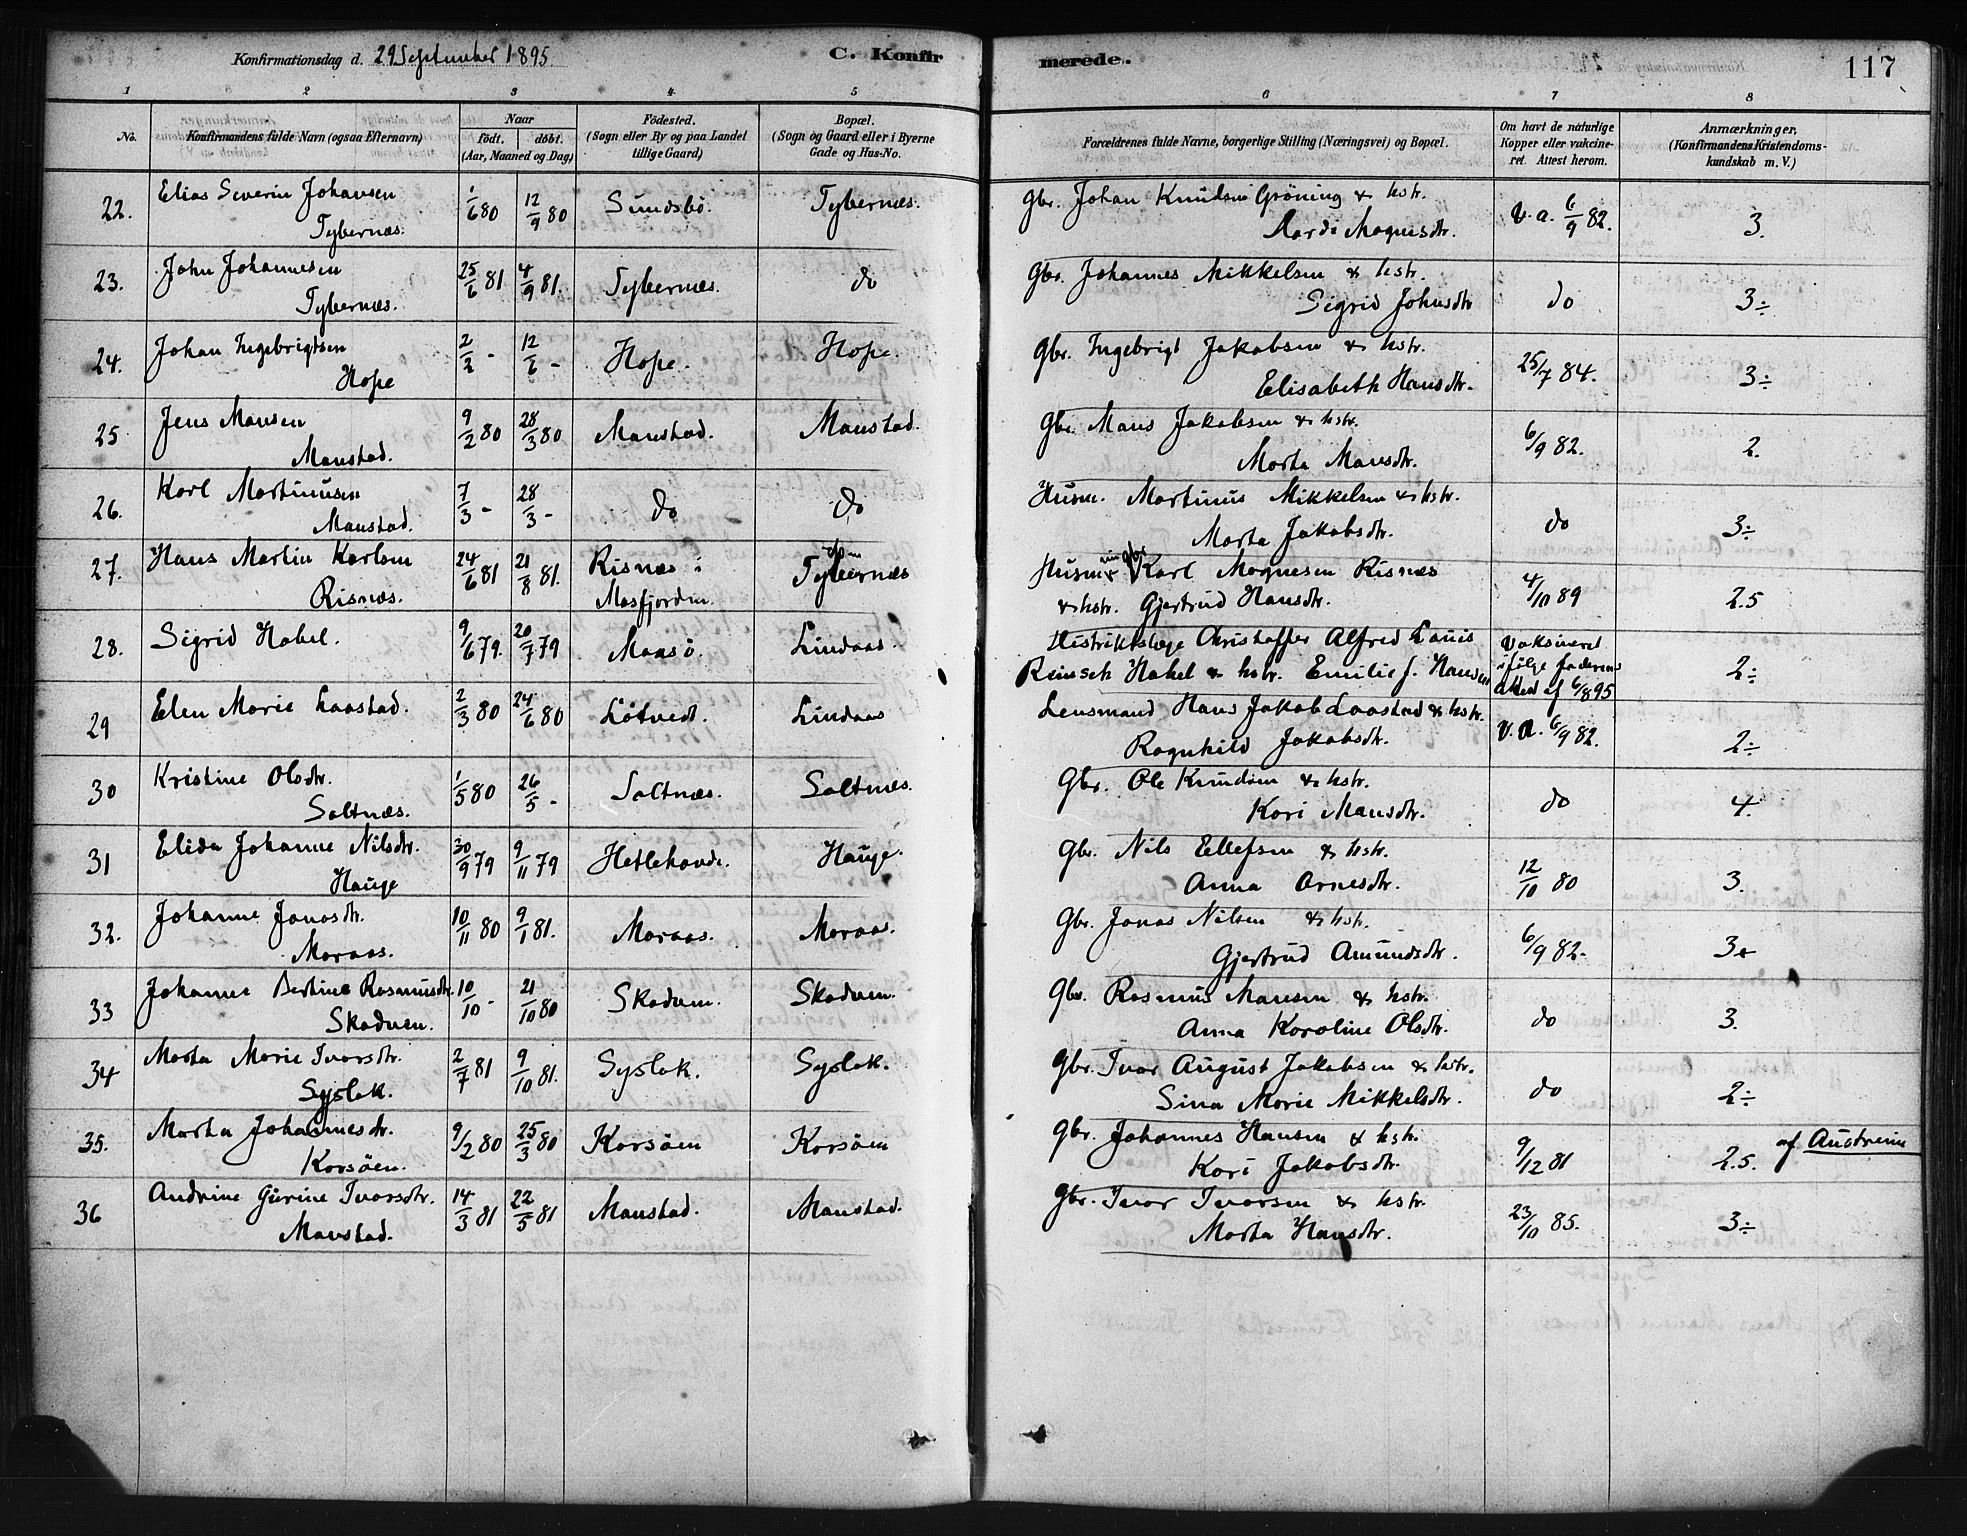 Konfirmationsdag d. 29 September 1895.
C. Konfirmerede.
117
1 2 3 4 5 6 7 8
No.
Konfirmandens fulde Navn (ogsaa Efternavn)
Naar
født. døbt.
(Aar, Maaned og Dag)
Fødested.
(Sogn eller By og paa Landet
tillige Gaard)
Bopæl.
(Sogn og Gaard eller i Byerne
Gade og Hus-No.
Forældrenes fulde Navne, borgerlige Stilling (Næringsvei) og Bopæl.
Om havt de naturlige
Kopper eller vakcine-
ret. Attest herom.
Anmærkninger,
(Konfirmandens Kristendoms-
kundskab m. V.)
22. Elias Severin Johansen 1/6 80 12/9 80 Sundsbø. Tybernæs. Gbr. Johan Knudsen Gröning & hstr. V. a. 6/9 82. 3.
Tybernæs. Mognusdtr.
23. John Johannesen 25/6 81 4/9 81. Tybernæs. do Gbr. Johannes Mikkelsen & hstr. do 3÷
Tybernæs. Sigrid Johnsdtr
24. Johan Ingebrigtsen 2/2 - 12/6 - Hope. Hope. Gbr. Ingebrigt Jakobsen & hstr. 25/7 84. 3÷
Hope Elisabeth Hansdtr.
25 Jens Mansen 9/2 80 28/3 80 Manstad. Manstad. Gbr. Mans Jakobsen & hstr. 6/9 82. 2.
Manstad. Marta Mansdtr.
26. Karl Martinusen 7/3 - 28/3 - do do Husm. Martinus Mikkelsen & hstr. do 3÷
Manstad. Marta Jakobsdtr.
27. Hans Martin Karlsen 24/6 81 21/8 81. Risnæs i Tybernæs Husm. Karl Mognesen Risnæs 4/10 89 2.5
Risnæs. Masfjorden. & hstr. Gjertrud Hansdtr.
28. Sigrid Habel. 9/6 79. 20/7 79 Maasø. Lindaas. Distriktslæge Christoffer Alfred Louis Vaksineret 2÷
Reinsch Habel & hstr. Emilie J. Hansen ifølge faderens
attest af 6/8 95
29 Elen Marie Laastad. 2/3 80 24/6 80 Løtvedt. Lindaas Lensmand Hans Jakob Laastad & hstr. V. A. 6/9 82. 2÷
Ragnhild Jakobsdtr.
30 Kristine Olsdtr. 1/5 80 26/5 - Saltnæs. Saltnæs. Gbr. Ole Knudsen & hstr. do 4.
Saltnæs. Kari Mansdtr.
31 Elida Johanne Nilsdtr. 30/9 79 9/11 79 Hetlehovde. Hauge. Gbr. Nils Ellefsen & hstr. 12/10 80 3.
Hauge Anna Arnesdtr.
32. Johanne Jonasdtr. 10/11 80 9/1 81. Moraas. Moraas. Gbr. Jonas Nilsen & hstr. 6/9 82. 3+
Moraas. Gjertrud Amundsdtr.
33 Johanne Bertine Rasmusdtr. 10/10 - 21/10 80 Skodven. Skodven. Gbr. Rasmus Mansen & hstr. do 3.
Skodven. Anna Karoline Olsdtr.
34 Marta Marie Ivarsdtr. 2/7 81 9/10 81. Syslak. Syslak. Gbr. Ivar August Jakobsen & hstr. do 2÷
Syslak. Sina Marie Mikkelsdtr.
35. Marta Johannesdtr. 9/2 80 25/3 80 Korsøen Korsøen Gbr. Johannes Hansen & hstr. 9/12 81 2.5. af Austreim
Korsøen. Kari Jakobsdtr.
36 Andrine Gurine Ivarsdtr. 14/3 81 22/5 81 Manstad. Manstad. Gbr. Ivar Ivarsen & hstr. 23/10 85. 3÷
Manstad. Marta Hansdtr.